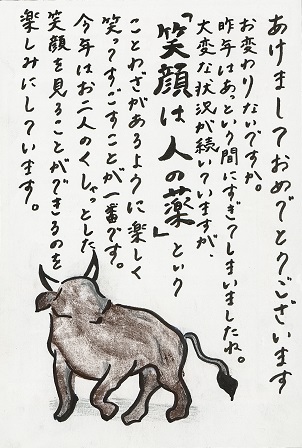 あけましておめでとうございます
お変わりないですか。
昨年はあっという間にすぎてしまいましたね。
大変な状況が続いていますが、
「笑顔は人の薬」という
ことわざがあるように楽しく
笑ってすごすことが一番です。
今年はお二人のくしゃっとした
笑顔を見ることができるのを
楽しみにしています。